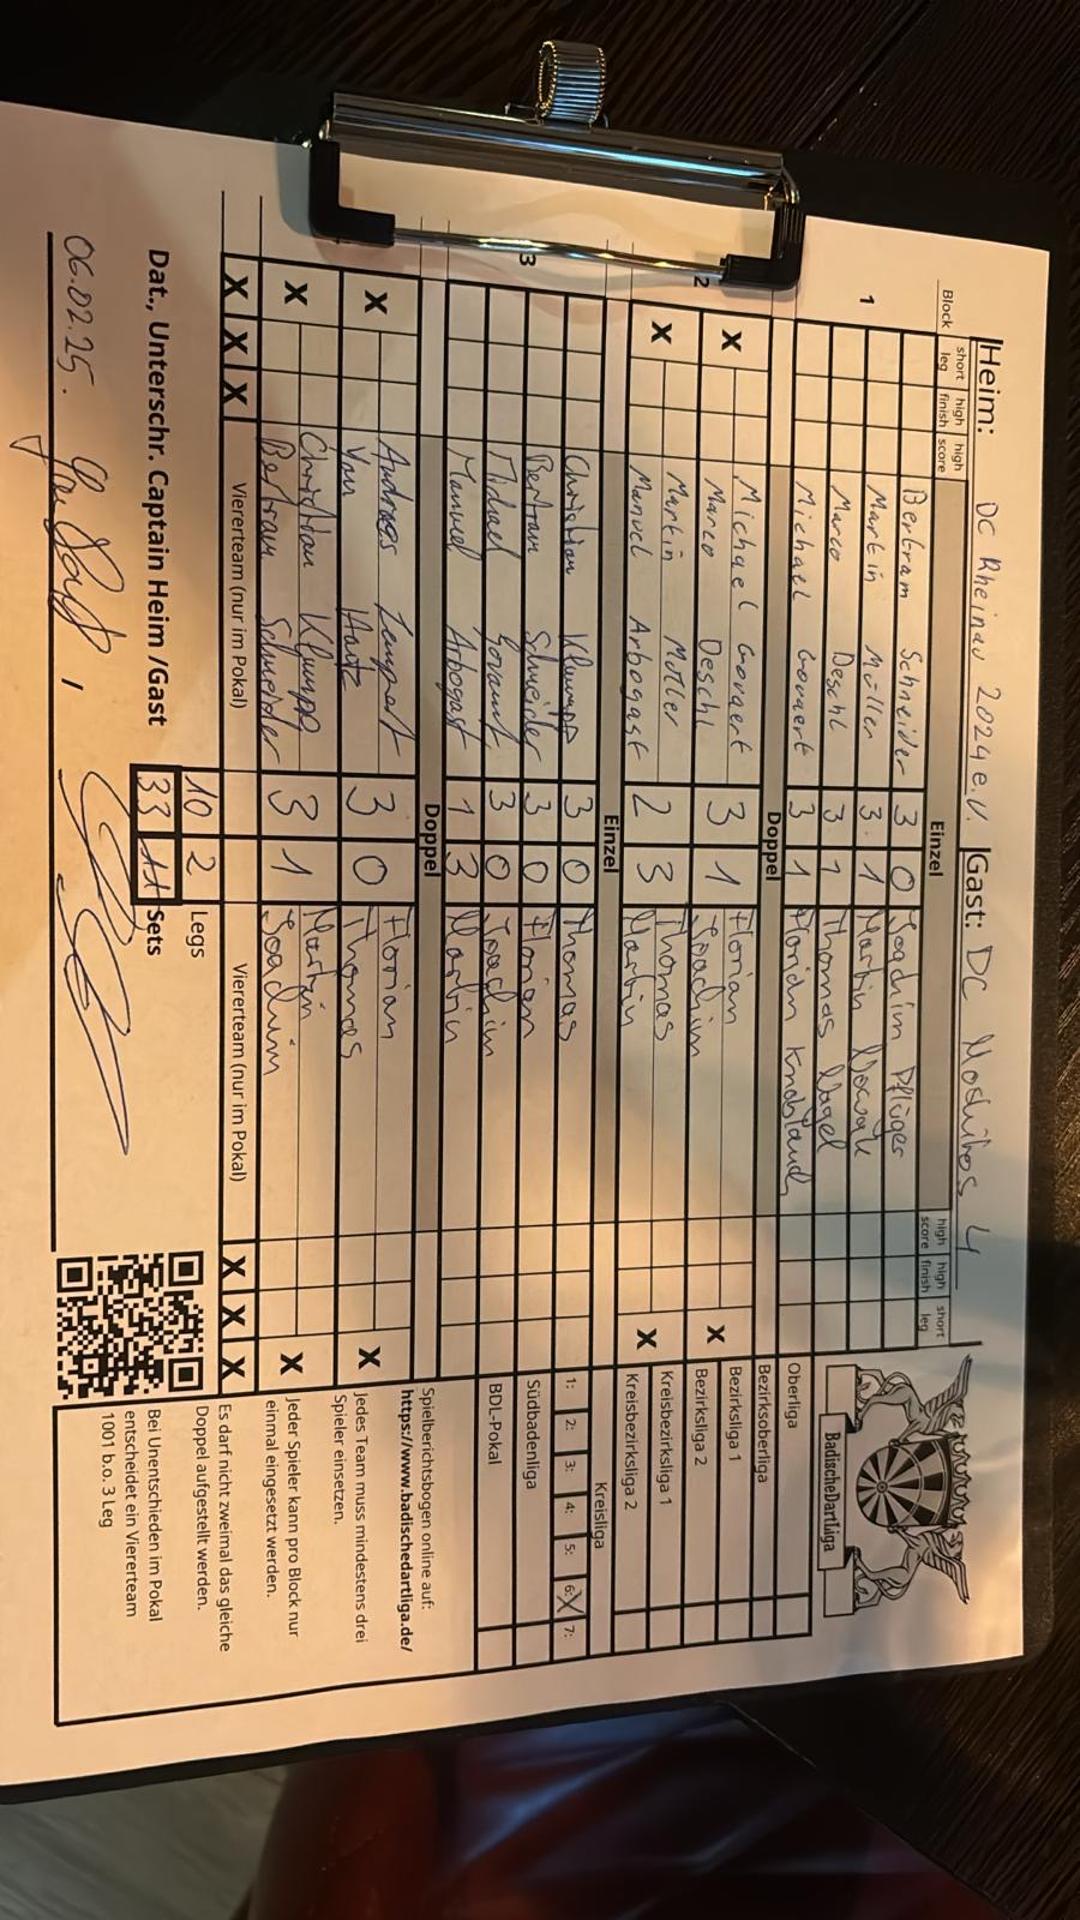 Heim: DC Rheinau 2024 e.V. Gast: DC Moskitos 4
Block short leg high finish high score Einzel high score high finish short leg
1
Bertram Schneider 3 0 Joachim Pflüger
Martin Müller 3 1 Martin Nowak
Marco Deschl 3 1 Thomas Nagel
Michael Govaert 3 1 Florian Knoblauch
Doppel
2
X Michael Govaert 3 1 Florian X
Marco Deschl Joachim
X Martin Müller 2 3 Thomas X
Manuel Arbogast Martin
Einzel
3
Christian Klumpp 3 0 Thomas
Bertram Schneider 3 0 Florian
Michael Govaert 3 0 Joachim
Manuel Arbogast 1 3 Martin
Doppel
X Andreas 3 0 Florian X
Hartz Thomas
X Christian Klumpp 3 1 Martin X
Bertram Schneider Joachim
X X X Viererteam (nur im Pokal) Viererteam (nur im Pokal) X X X
10 2 Legs
33 11 Sets
Dat., Unterschr. Captain Heim /Gast
06.02.25.
BadischeDartLiga
Oberliga
Bezirksoberliga
Bezirksliga 1
Bezirksliga 2
Kreisbezirksliga 1
Kreisbezirksliga 2
Kreisliga
1: 2: 3: 4: 5: 6: X 7:
Südbadenliga
BDL-Pokal
Spielberichtsbogen online auf:
https://www.badischedartliga.de/
Jedes Team muss mindestens drei
Spieler einsetzen.
Jeder Spieler kann pro Block nur
einmal eingesetzt werden.
Es darf nicht zweimal das gleiche
Doppel aufgestellt werden.
Bei Unentschieden im Pokal
entscheidet ein Viererteam
1001 b.o. 3 Leg